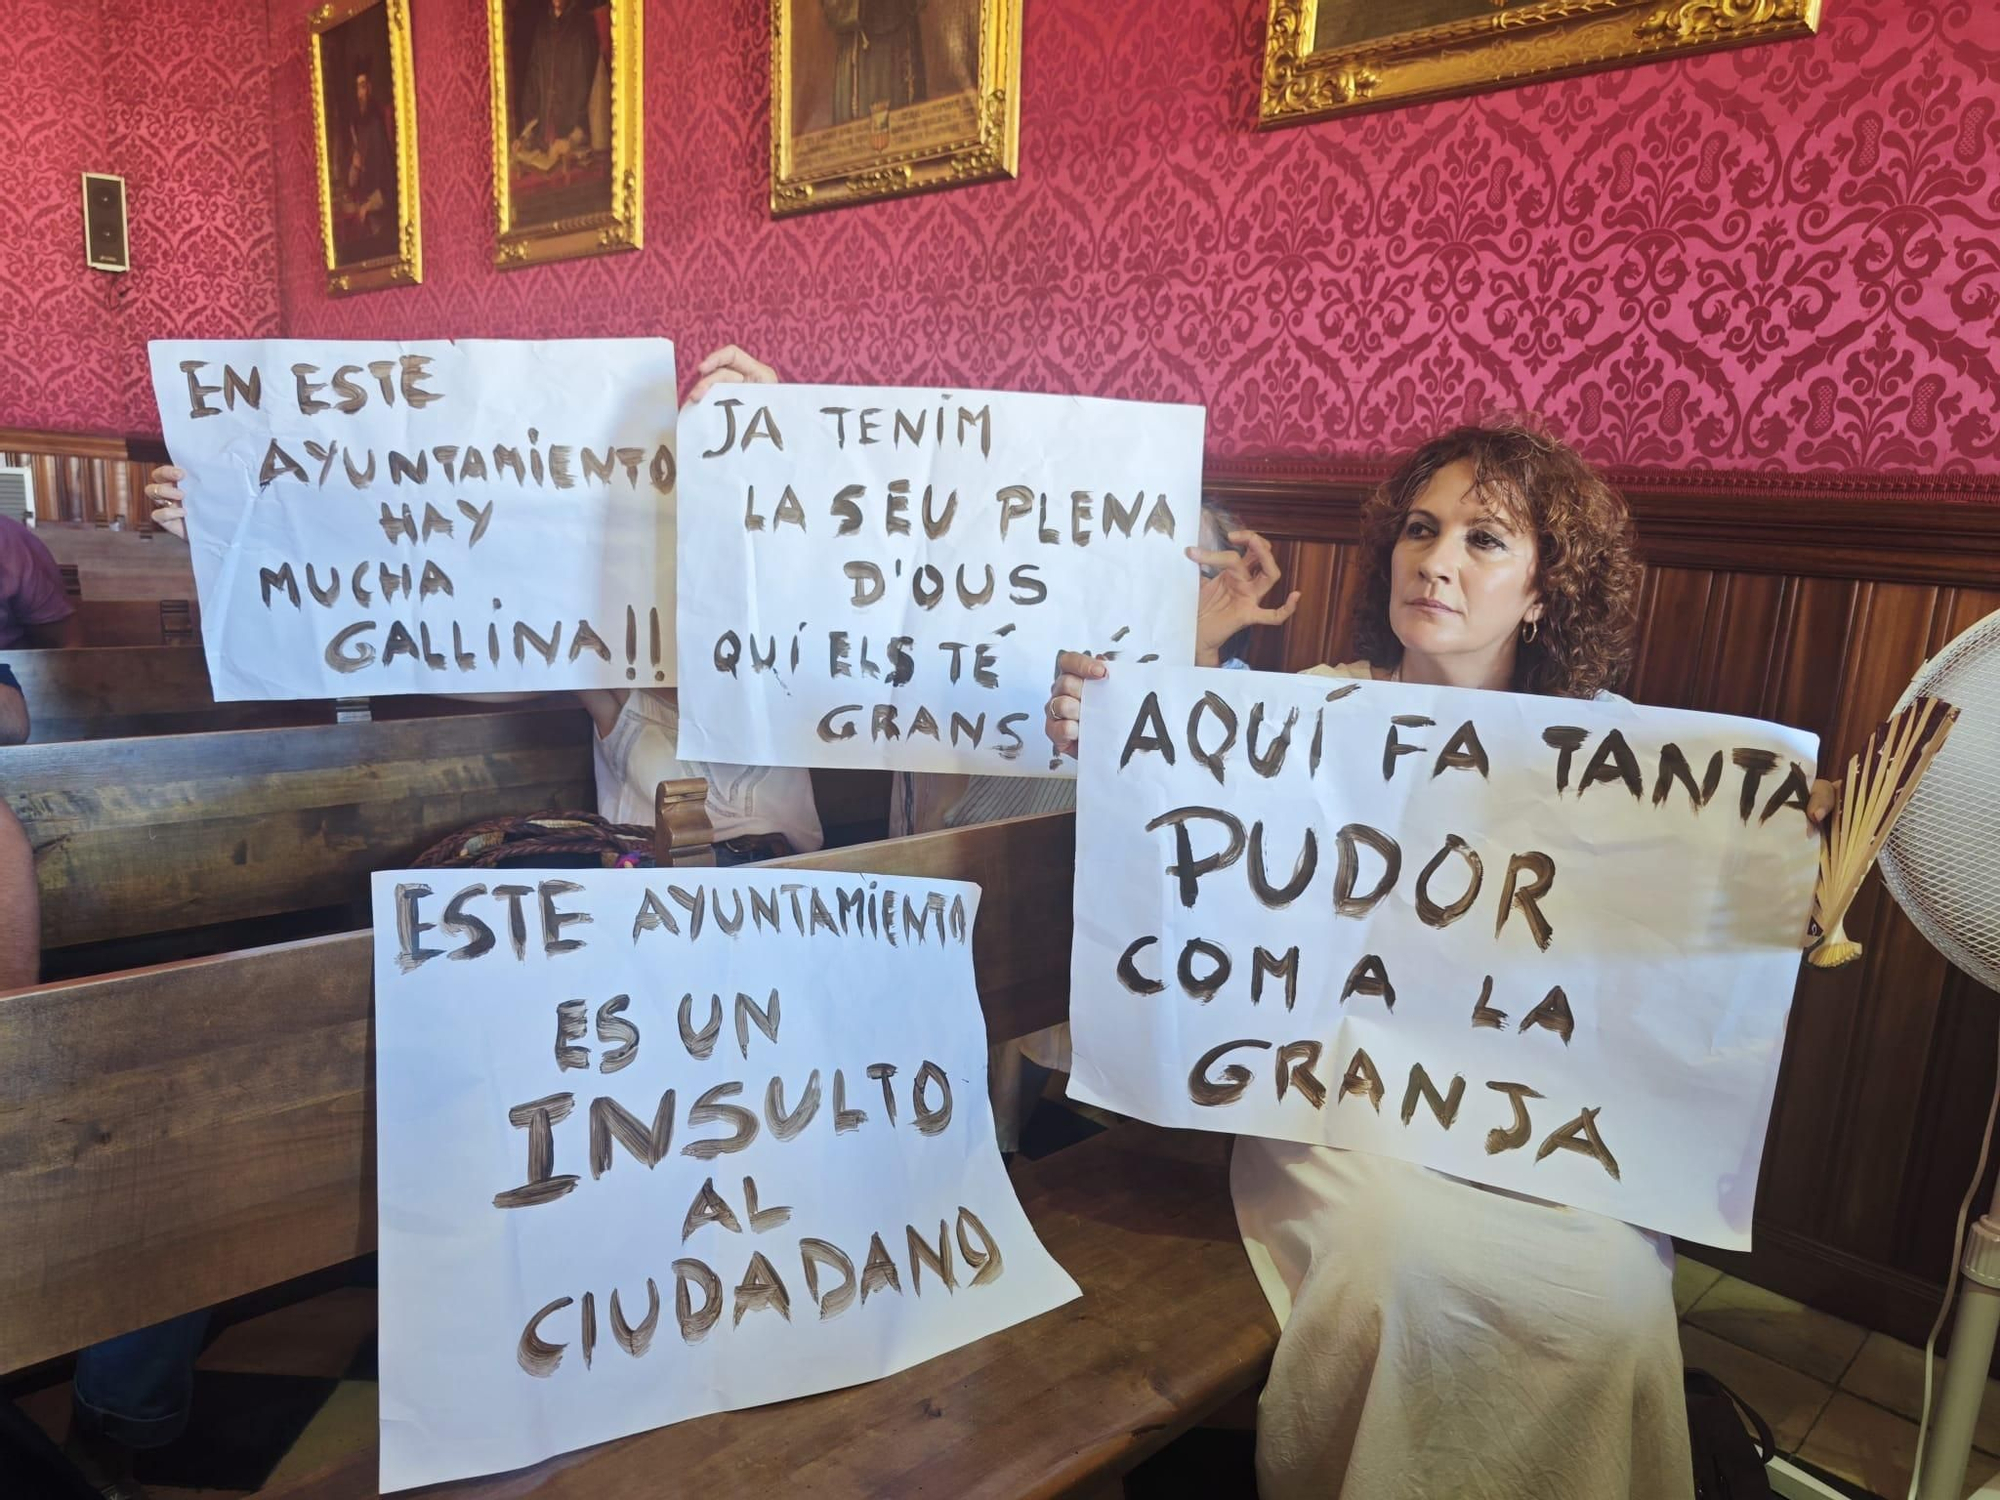 EN ESTE
AYUNTAMiENTO
HAY
MUCHA
GALLiNA!!
JA TENiM
LA SEU PLENA
D'OUS
QUÍ ELS TÉ MÉS
GRANS
AQUÍ FA TANTA
PUDOR
COM A LA
GRANJA
ESTE AYUNTAMiENTO
ES UN
INSULTO
AL
CIUDADANO